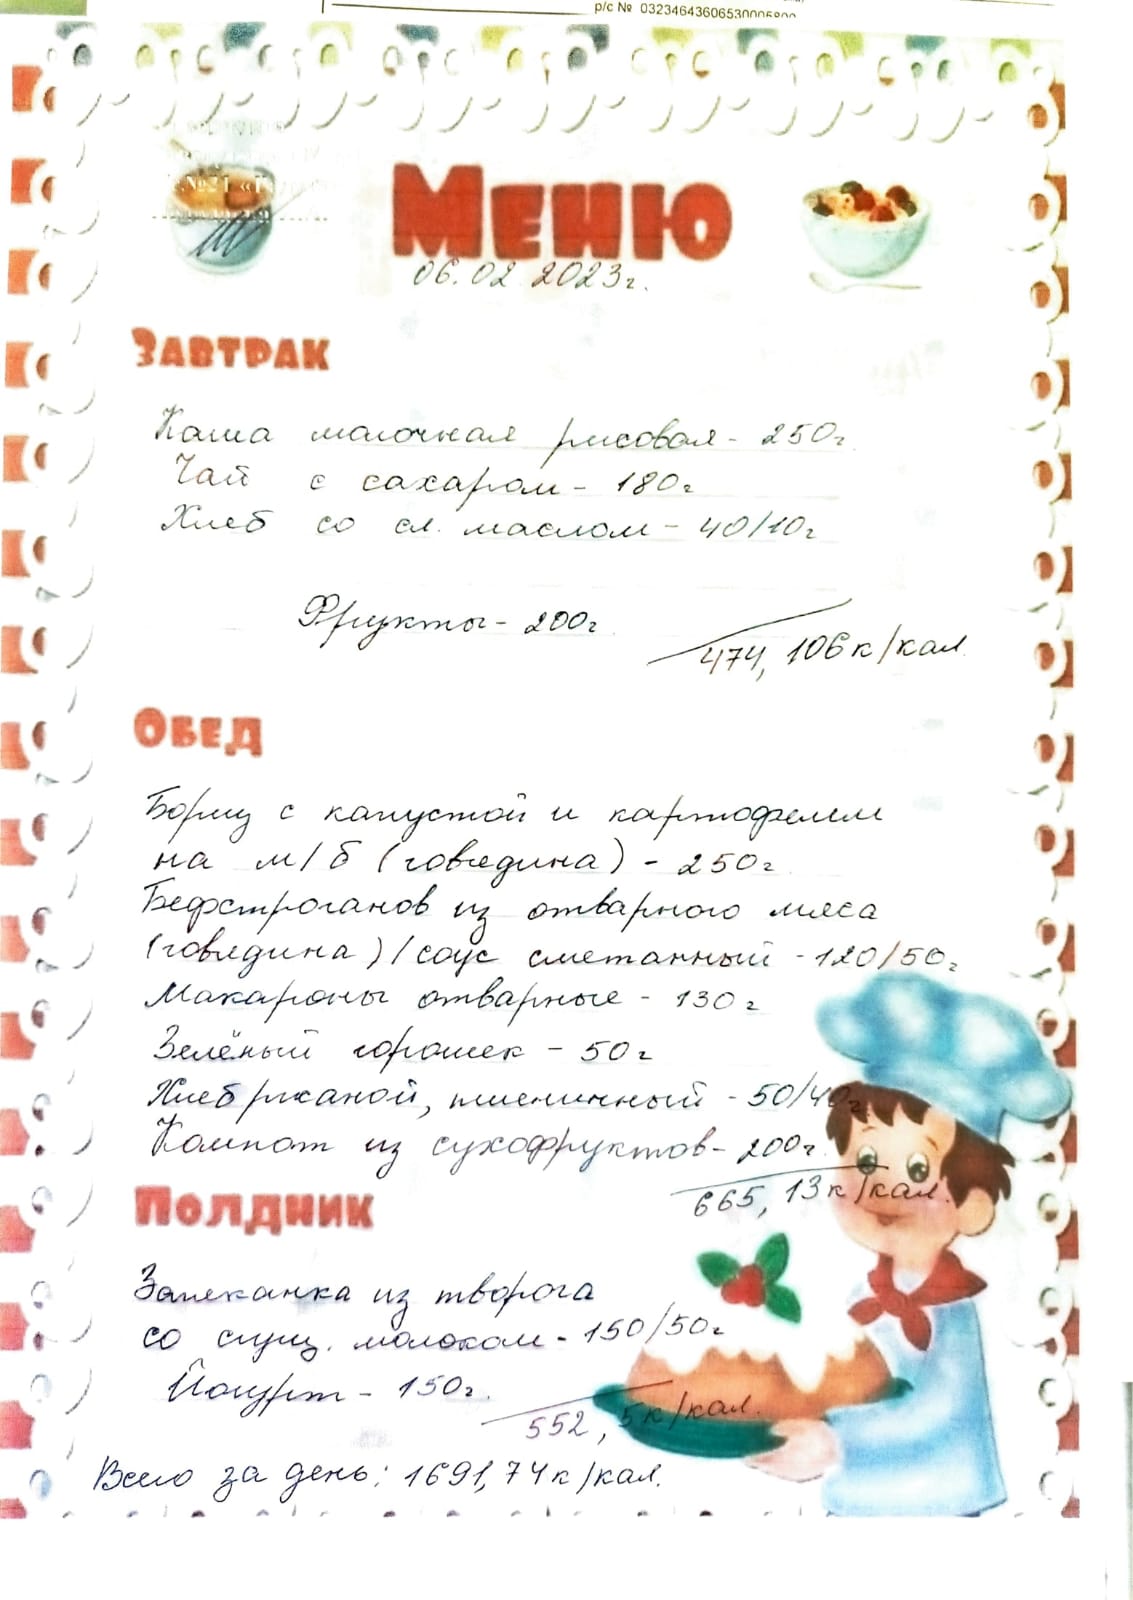 р/с № 03234643606530006800
№21
Меню
06.02.2023г.
Завтрак
Каша молочная рисовая - 250г.
Чай с сахаром - 180г
Хлеб со сл. маслом - 40/10г
Фрукты - 200г.
474,106 к/кал.
Обед
Борщ с капустой и картофелем
на м/б (говядина) - 250г
Бефстроганов из отварного мяса
(говядина)/соус сметанный - 120/50г
Макароны отварные - 130г
Зелёный горошек - 50г
Хлеб ржаной, пшеничный - 50/40г
Компот из сухофруктов - 200г.
665,13 к/кал.
Полдник
Запеканка из творога
со сгущ. молоком - 150/50г
Йогурт - 150г.
552,5 к/кал.
Всего за день: 1691,74 к/кал.